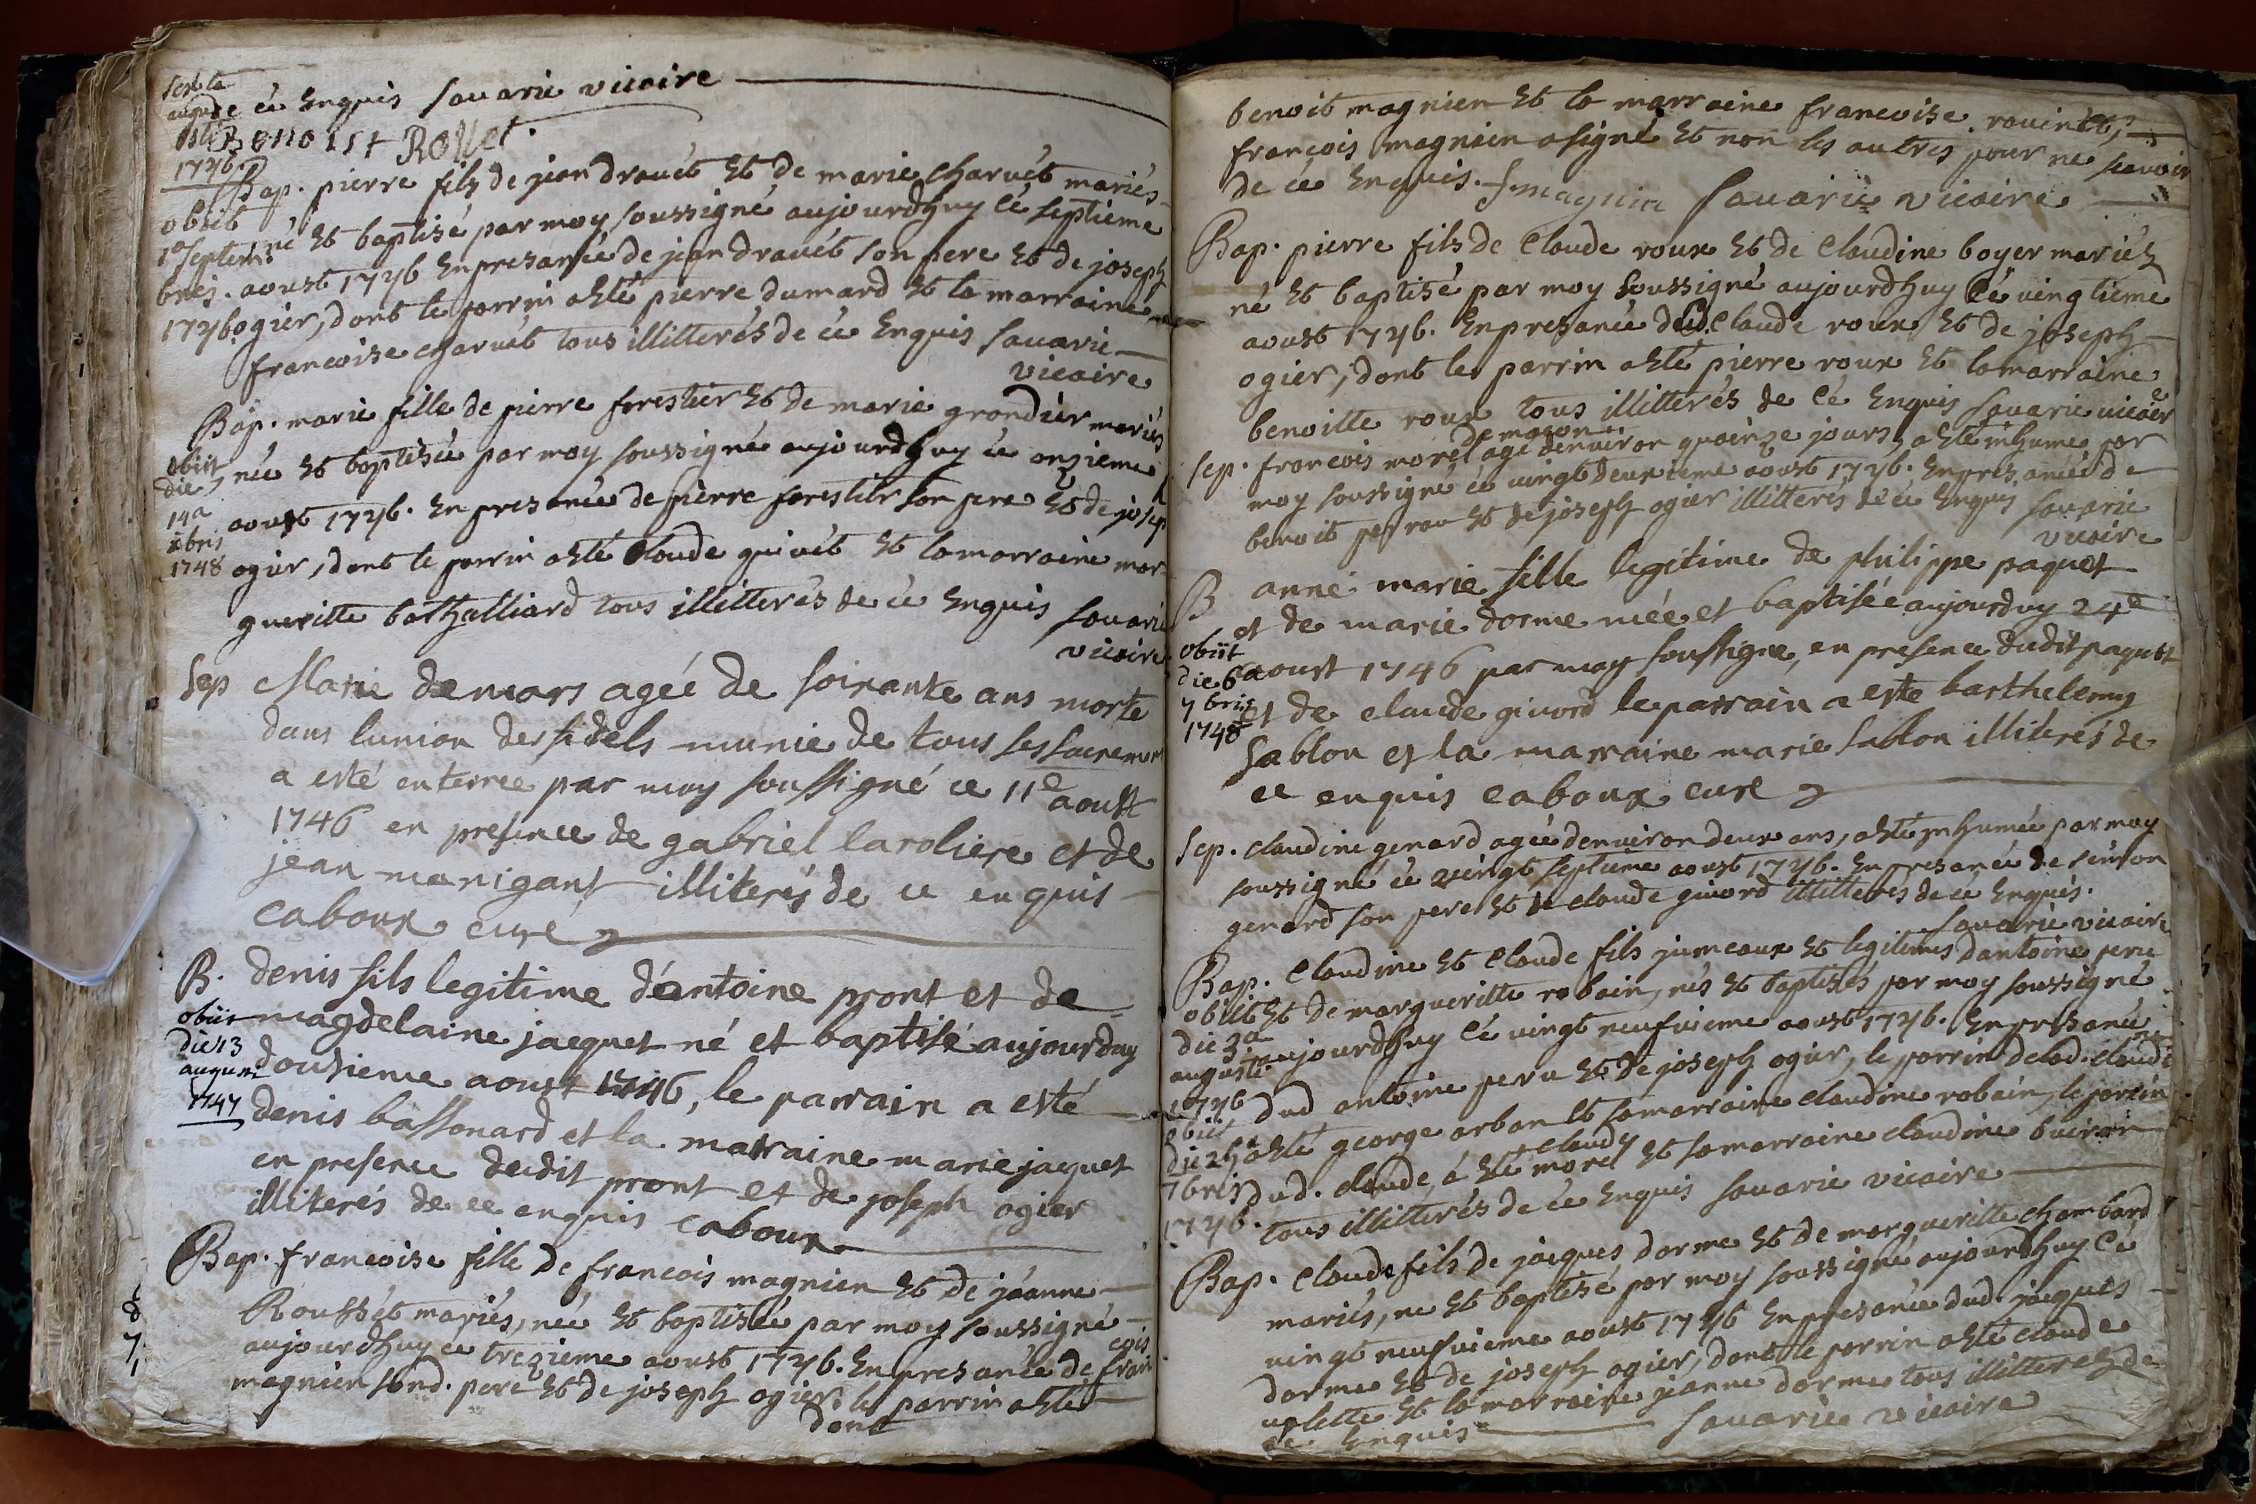 de ce Enquis Savarie vicaire
Benoist Rollet
1746
Bap. pierre fils de jean dravét Et de marie charvét mariés
obiit
né Et baptisé par moy soussigné aujourdhuy cé septieme
1a septem
bris.
aoust 1746 En presance de jean dravét son pere Et de joseph
1746
ogier, dont le parrin a Eté pierre dumard Et la marraine
francoise charvét tous illitterés de ce Enquis Savarie
vicaire
Bap. marie fille de pierre forestier Et de marie grondier mariés
obiit
née Et baptisée par moy soussigné aujourdhuy ce onzieme
die
14a
aoust 1746. En presance de pierre forestier son pere Et de josep
xbris
1748
ogier, dont le parrin a Eté Claude quivét Et la marraine mar
gueritte bathalliard tous illitterés de ce Enquis Savarie
vicaire
Sep Marie demars agée de soixante ans morte
dans lunion des fidels munie de tous ses sacremens
a esté enterrée par moy soussigné ce 11e aoust
1746 en presence de gabriel laroliere et de
jean manigant illiterés de ce enquis
caboux curé
B. denis fils legitime d'antoine pront et de
obiit
magdelaine jacquet né et baptisé aujourduy
die 13
augusti
douzieme aoust 1746, le parrain a esté
1747
denis bassonard et la marraine marie jacquet
en presence dudit pront et de joseph ogier
illiterés de ce enquis caboux
Bap. francoise fille de francois magnien Et de jéanne
Roussét mariés, née Et baptisée par moy soussigné
aujourdhuy ce trezieme aoust 1746. En presance de fran
cois
magnien sond. pere Et de joseph ogier le parrin a Eté
dont
benoit magnien Et la marraine francoise
francois magnien a signé Et non les autres pour ne scavoir
de ce Enquis. f magnin Savarie vicaire
Bap. pierre fils de Claude roux Et de Claudine boyer mariés
né Et baptisé par moy soussigné aujourdhuy cé vingtieme
aoust 1746. En presance dud. Claude roux Et de joseph
ogier, dont le parrin a Eté pierre roux Et la marraine
benoitte roux tous illitterés de cé Enquis Savarie vicaire
de macon
Sep. francois morel agé denviron quainze jours, a Eté inhumé par
moy soussigné ce vingt deuxieme aoust 1746. En presance de
benoit perrau Et de joseph ogier illitterés de ce Enquis Savarie
vicaire
B anne marie fille legitime de philippe paquet
et de marie dorme née et baptisée aujourduy 24e
obiit
die 6a
aoust 1746 par moy soussigné, en presence dudit paquet
7bris
et de claude givord le parrain a esté barthelemy
1748
Sablon et la marraine marie Sablon illiterés de
ce enquis caboux curé
Sep. claudine genard agée denviron deux ans, a Eté inhumée par moy
soussigné ce vingt septieme aoust 1746. En presance de
genard son pere Et de claude givord illitterés de ce Enquis.
Savarie vicaire
Bap. Claudine Et Claude fils jumeaux Et legitimes dantoine peru
obiit
Et de margueritte robain, nés Et baptisés par moy soussigné
die 3a
augusti
aujourdhuy cé vingt neufvieme aoust 1746. En presance
1746
dud antoine peru Et de joseph ogier, le parrin de lad. claudi
ne
obiit
die 25a
a Eté george arban Et sa marraine claudine robain, le parrin
7bris
dud. claude, a Eté claude morel Et sa marraine claudine buiron
1746.
tous illitterés de ce Enquis Savarie vicaire
Bap. Claude fils de jacques dorme Et de margueritte chambard
mariés, né Et baptisé par moy soussigné aujourdhuy cé
vingt neufvieme aoust 1746 En presance dud. jacques
dorme Et de joseph ogier, dont le parrin a Eté claude
Et la marraine jeanne dorme tous illitterés de
ce Enquis Savarie vicaire